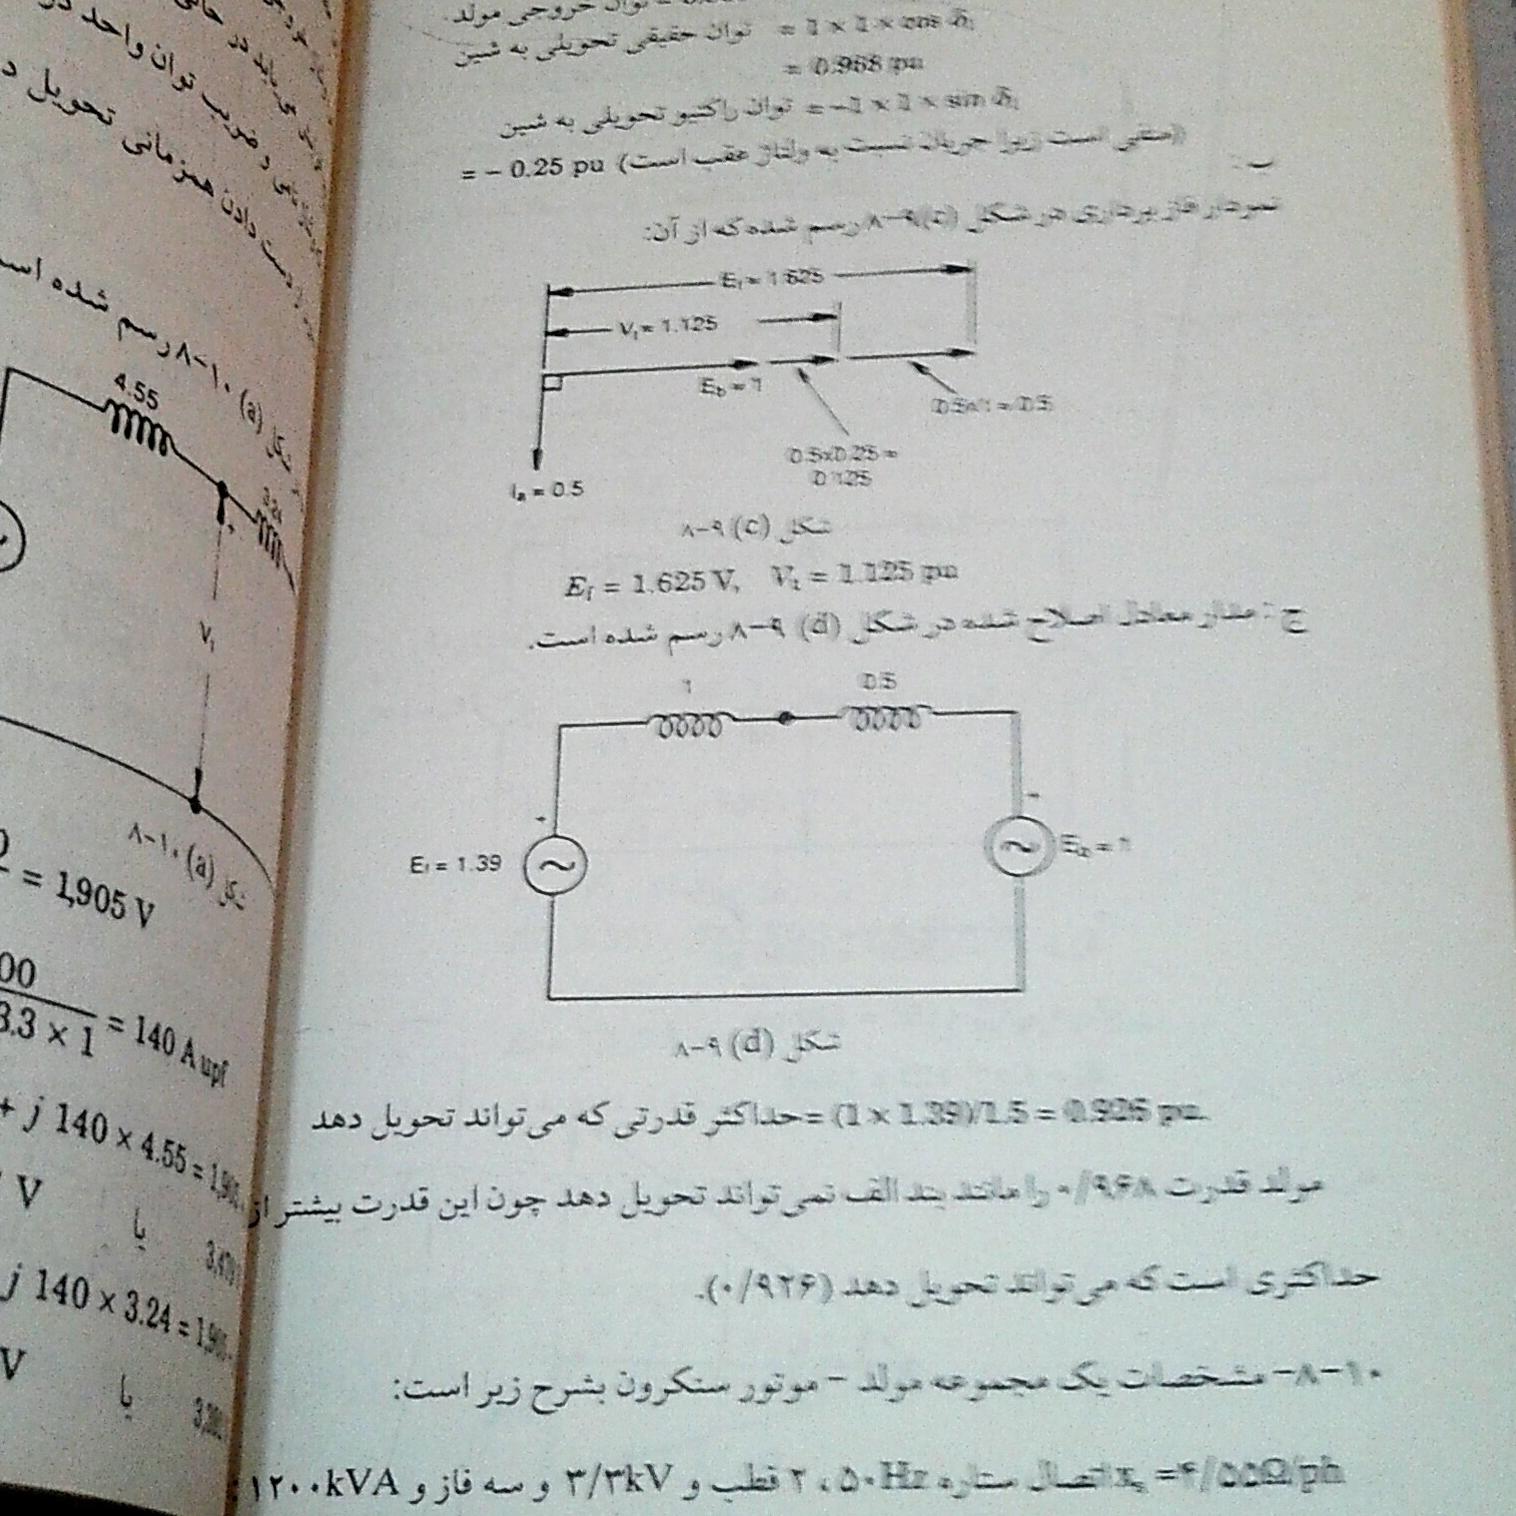 توان حقیقی تحویلی به شین = 1 × 1 × cos δ₁
= 0.968 pu
توان راکتیو تحویلی به شین = −1 × 1 × sin δ₁
= − 0.25 pu (منفی است زیرا جریان نسبت به ولتاژ عقب است)
ب:
نمودار فاز برداری در شکل (c) ۸−۹ رسم شده که از آن:
Ef = 1.625
Vt = 1.125
Eb = 1
0.5×1 = 0.5
0.5×0.25 =
0.125
Ia = 0.5
شکل (c) ۸−۹
Ef = 1.625 V, Vt = 1.125 pu
ج : مدار معادل اصلاح شده در شکل (d) ۸−۹ رسم شده است.
1
0.5
+
Ef = 1.39
Eb = 1
شکل (d) ۸−۹
حداکثر قدرتی که می‌تواند تحویل دهد = (1 × 1.39)/1.5 = 0.926 pu.
مولد قدرت ۰/۹۶۸ را مانند بند الف نمی‌تواند تحویل دهد چون این قدرت بیشتر از
حداکثری است که می‌تواند تحویل دهد (۰/۹۲۶).
۸−۱۰− مشخصات یک مجموعه مولد − موتور سنکرون بشرح زیر است:
xs = ۴/۵۵Ω/ph اتصال ستاره ۵۰Hz ، ۲ قطب و ۳/۳kV و سه فاز و ۱۲۰۰kVA :
توان واحد در
تحویل د
دست دادن همزمانی
(a) ۸−۱۰ رسم شده اس
4.55
3.24
+
Vt
شکل (a) ۸−۱۰
= 1,905 V
00
3.3 × 1 = 140 A upf
+ j 140 × 4.55 = 1,905
V
یا
j 140 × 3.24 = 1,905
V
یا